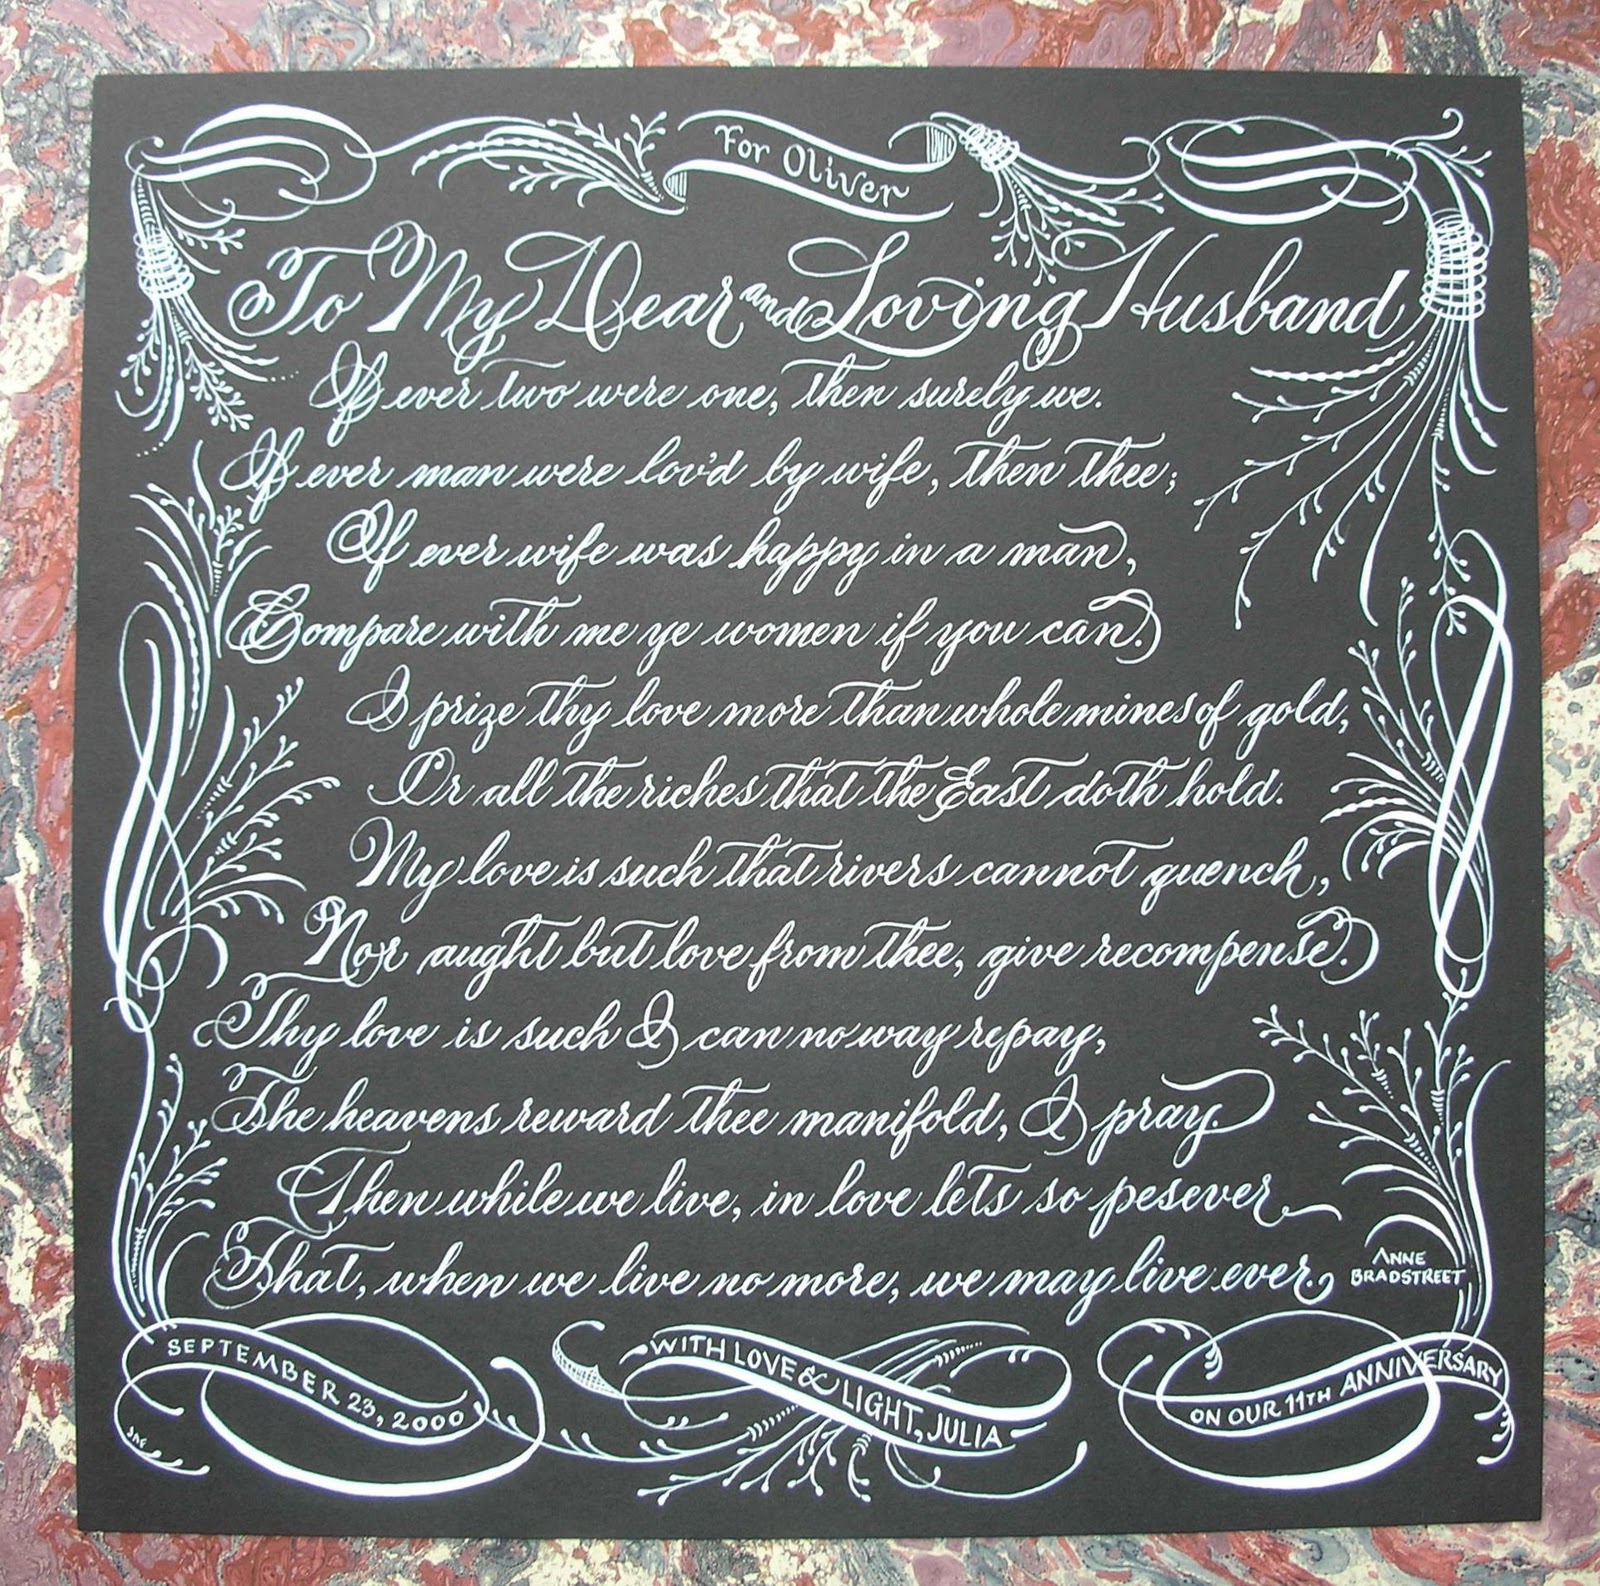 For Oliver
To My Dear and Loving Husband
If ever two were one, then surely we.
If ever man were lov'd by wife, then thee;
If ever wife was happy in a man,
Compare with me ye women if you can.
I prize thy love more than whole mines of gold,
Or all the riches that the East doth hold.
My love is such that rivers cannot quench,
Nor aught but love from thee, give recompense.
Thy love is such I can no way repay,
The heavens reward thee manifold, I pray.
Then while we live, in love lets so pesever
That, when we live no more, we may live ever.
ANNE
BRADSTREET
SEPTEMBER 23, 2000
WITH LOVE & LIGHT, JULIA
ON OUR 11TH ANNIVERSARY